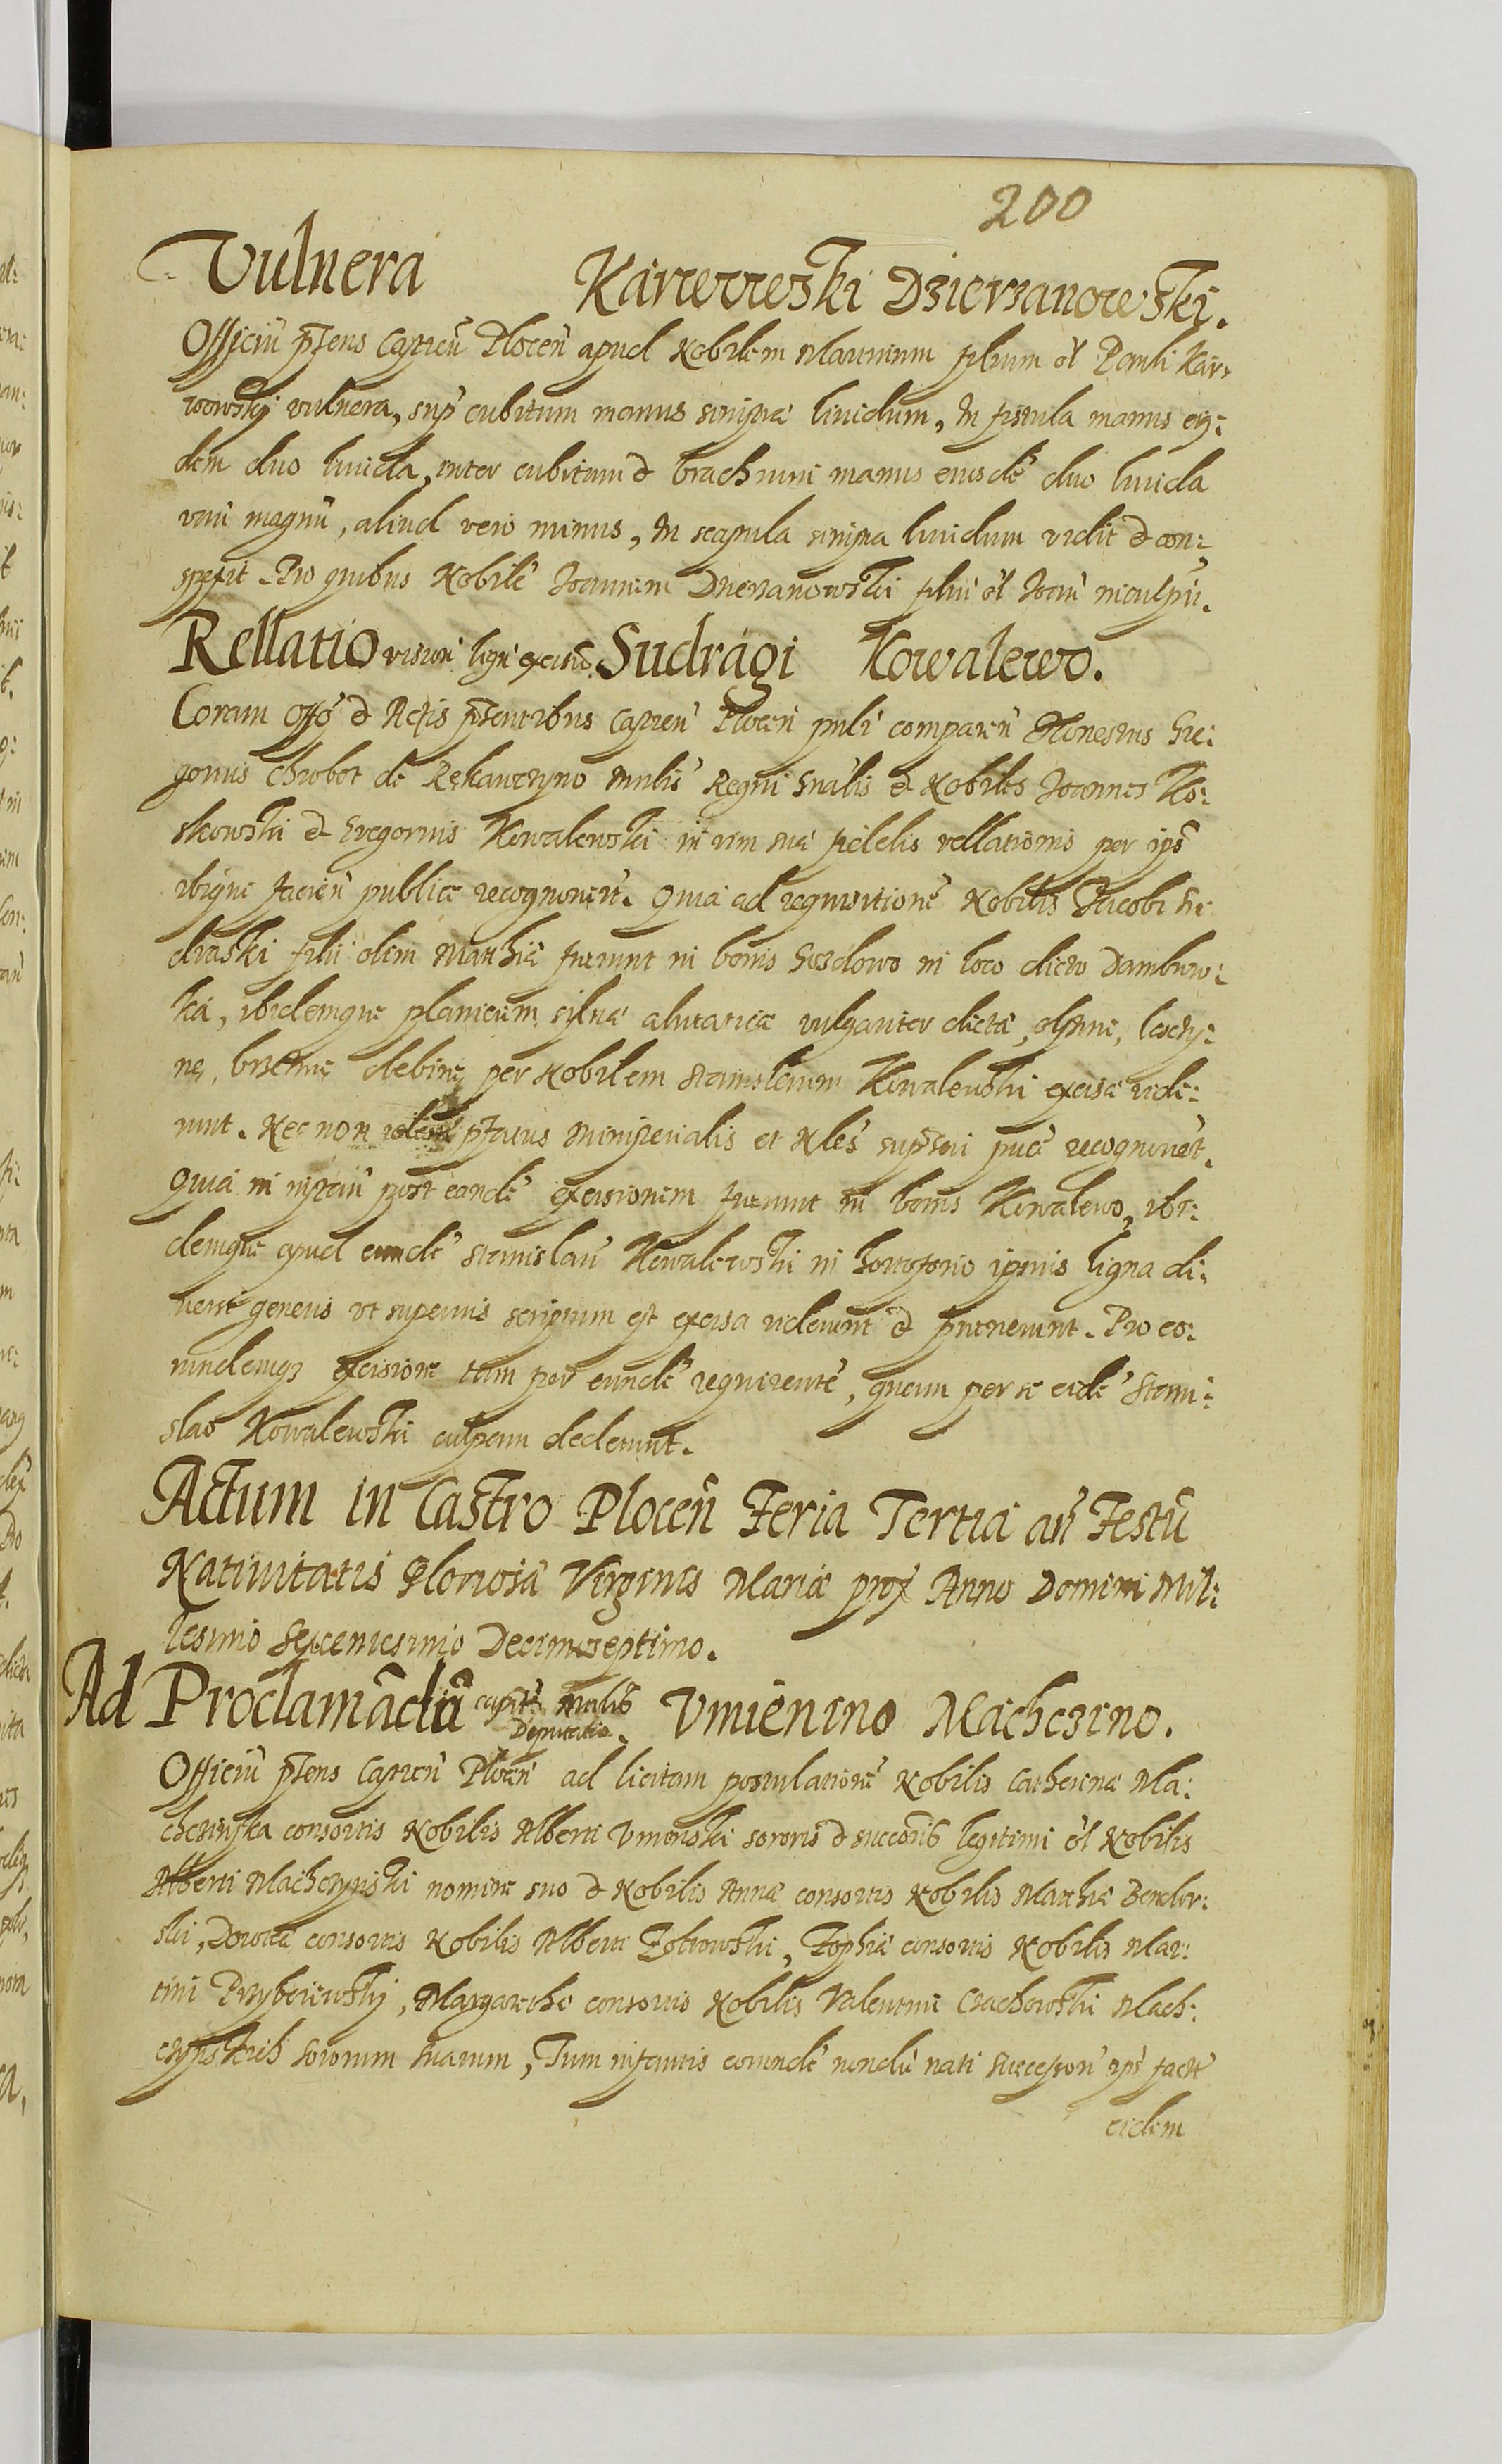 200
Vulnera Karwowski Dzierzanowski.
Officiū pñs Capten̄ Plocen̄ apud Nobilem Martinum filium ol Pauli Kar:
wowskij vulnera, sup cubitum manus sinistrā lividum, in fistula manus eius:
dem duo livida, inter cubitum & brachium manus eiusdē duo livida
unū magnū, aliud vero minus, in scapula sinistra lividum vidit & con:
spexit. Pro quibus Nobilē Joannem Dzierzanowski filiū ol Joan̄ inculpū.
Rellatio vision̄ lign̄ excisū Sudragi Kowalewo.
Coram Offo & Actis pñtibus Capten̄ Plocen̄ psnli comparen̄ Honestus Gre:
gorius Chrobot de Rekawczyno mnlis Regni Gnālis & Nobiles Joannes Ko:
skowski & Gregorius Kowalewski in vim suā fidelis rellationis per ips
ibique facien̄ publice recognover̄. Quia ad requisitionē Nobilis Jacobi Su
draski filii olim Matthiæ fuerunt in bonis Gozdowo in loco dicto Dambrow:
ka, ibidemque planicum silvā vulgariter dictā, olszine, lesczy:
ne, brzezine debine per Nobilem Stanislaum Kowalewski excisā vide:
runt. Nec non idem pfatus Ministerialis et Nles suprscri pucē recognover̄t.
Quia in instan̄ post eandē excisionem fuerunt in bonis Kowalewo, ibi:
demque apud eundē Stanislaū Kowalewski in horrosorio ipsius ligna di:
versi generis ut superius scriptum est excisa viderunt & invenerunt. Pro eo:
rundemq; excisione tam per eundē requirentē, quam per se eidē Stani:
slao Kowalewski culpam dederunt.
Actum in Castro Plocen̄ Feria Tertia an̄ Festū
Nativitatis Gloriosæ Virginis Mariæ prox Anno Domini Mil:
lesimo Sexcentesimo Decimoseptimo.
Ad Proclamādū capitē mnlis Deputatio. Umienino Machczino.
Officiū pñs Capten̄ Plocen̄ ad licitam postulationē Nobilis Catherinæ Ma:
chczinska consortis Nobilis Alberti Umienski sororis & succoris legitimi ol Nobilis
Alberti Machczynski nomine suo & Nobilis Annæ consortis Nobilis Matthiæ Bendor:
ski, Dorotheæ consortis Nobilis Alberti Zotrowski, Zophiæ consortis Nobilis Mar:
tini Przyborowskij, Margarethæ consortis Nobilis Valentini Czachowski Mach:
czynskich sororum suarum, Tum infantis eorundē nondū nati successorū ips facit
eidem